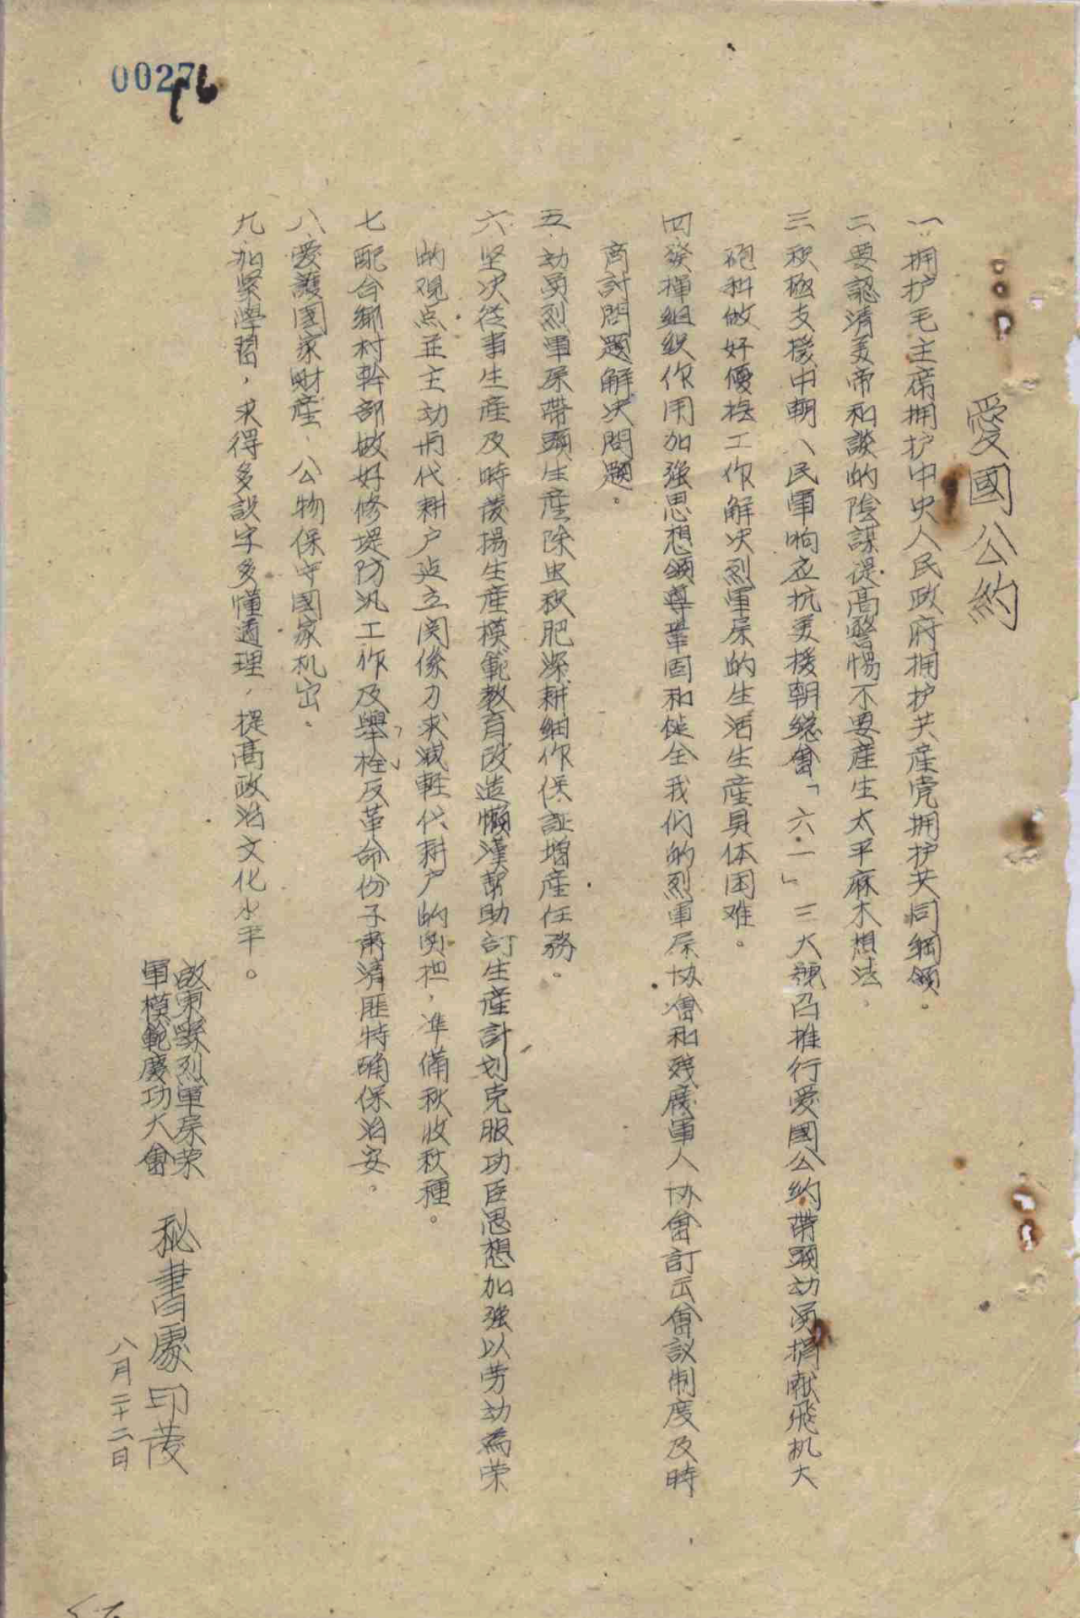 愛國公約
一.拥护毛主席拥护中央人民政府拥护共産党拥护共同綱領。
二.要認清美帝和談的陰謀提高警惕不要産生太平麻木想法。
三积極支援中朝人民軍响应抗美援朝総會「六.一」三大號召推行愛國公約帶頭动員捐献飛机大
砲和做好優抚工作解決烈軍属的生活生産具体困难。
四發揮組织作用加强思想領導鞏固和健全我们的烈軍属协會和残廢軍人协會訂正會议制度及時
商討問題解决問題。
五.动員烈軍属帶頭生産除虫积肥深耕細作保証增産任務。
六.坚决從事生産及時發揚生産模範教育改造懶漢幫助訂生産計划克服功臣思想加强以劳动為荣
的观点並主动同代耕户建立関係力求減輕代耕户的負担,准備秋收秋種。
七配合鄉村幹部做好修堤防汛工作及舉检反革命份子肅清匪特确保治安。
八.愛護國家財産、公物保守國家机宓。
九.加緊學習,求得多識字多懂道理,提高政治文化水平。
啟東縣烈軍属荣
軍模範慶功大會
秘書處印發
八月二十二日
0027
76